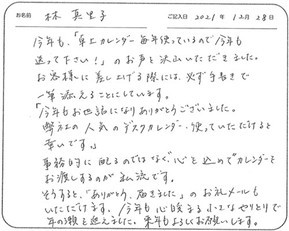 お名前 林 真生子 ご記入日 2021年12月28日
今年も、「卓上カレンダー毎年使っているので今年も
送って下さい!」のお声を沢山いただきました。
お客様に差し上げる際には、必ず手書きで
一筆添えることにしています。
「今年もお世話になりありがとうございました。
弊社の人気のデスクカレンダー、使っていただけると
幸いです。」
事務的に配るのではなく、心を込めてカレンダーを
お渡しするのが私流です。
そうすると、「ありがとう、届きました」のお礼メールも
いただけます。今年も心暖まる小さなやりとりで
年の瀬を迎えました。来年もよろしくお願いします。